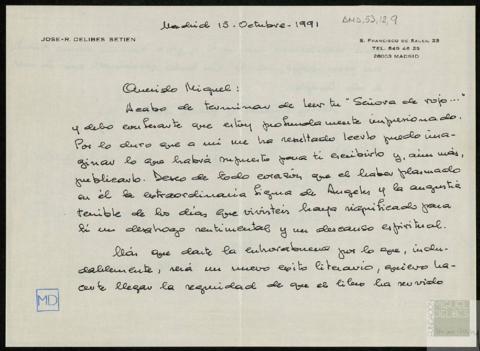 Madrid 15. Octubre. 1991
AMD,53,12,9
JOSE-R. DELIBES SETIEN
S. FRANCISCO DE SALES, 23
TEL. 549 46 25
28003 MADRID
Querido Miguel:
Acabo de terminar de leer tu "Señora de rojo..."
y debo confesarte que estoy profundamente impresionado.
Por lo duro que a mí me ha resultado leerlo puedo ima-
ginar lo que habrá supuesto para ti escribirlo y, aún más,
publicarlo. Deseo de todo corazón que el haber plasmado
en él la extraordinaria figura de Angeles y la angustia
terrible de los días que vivisteis haya significado para
ti un desahogo sentimental y un descanso espiritual.
Más que darte la enhorabuena por lo que, indu-
dablemente, será un nuevo éxito literario, quiero ha-
certe llegar la seguridad de que el libro ha servido
MD
MIGUEL
DELIBES